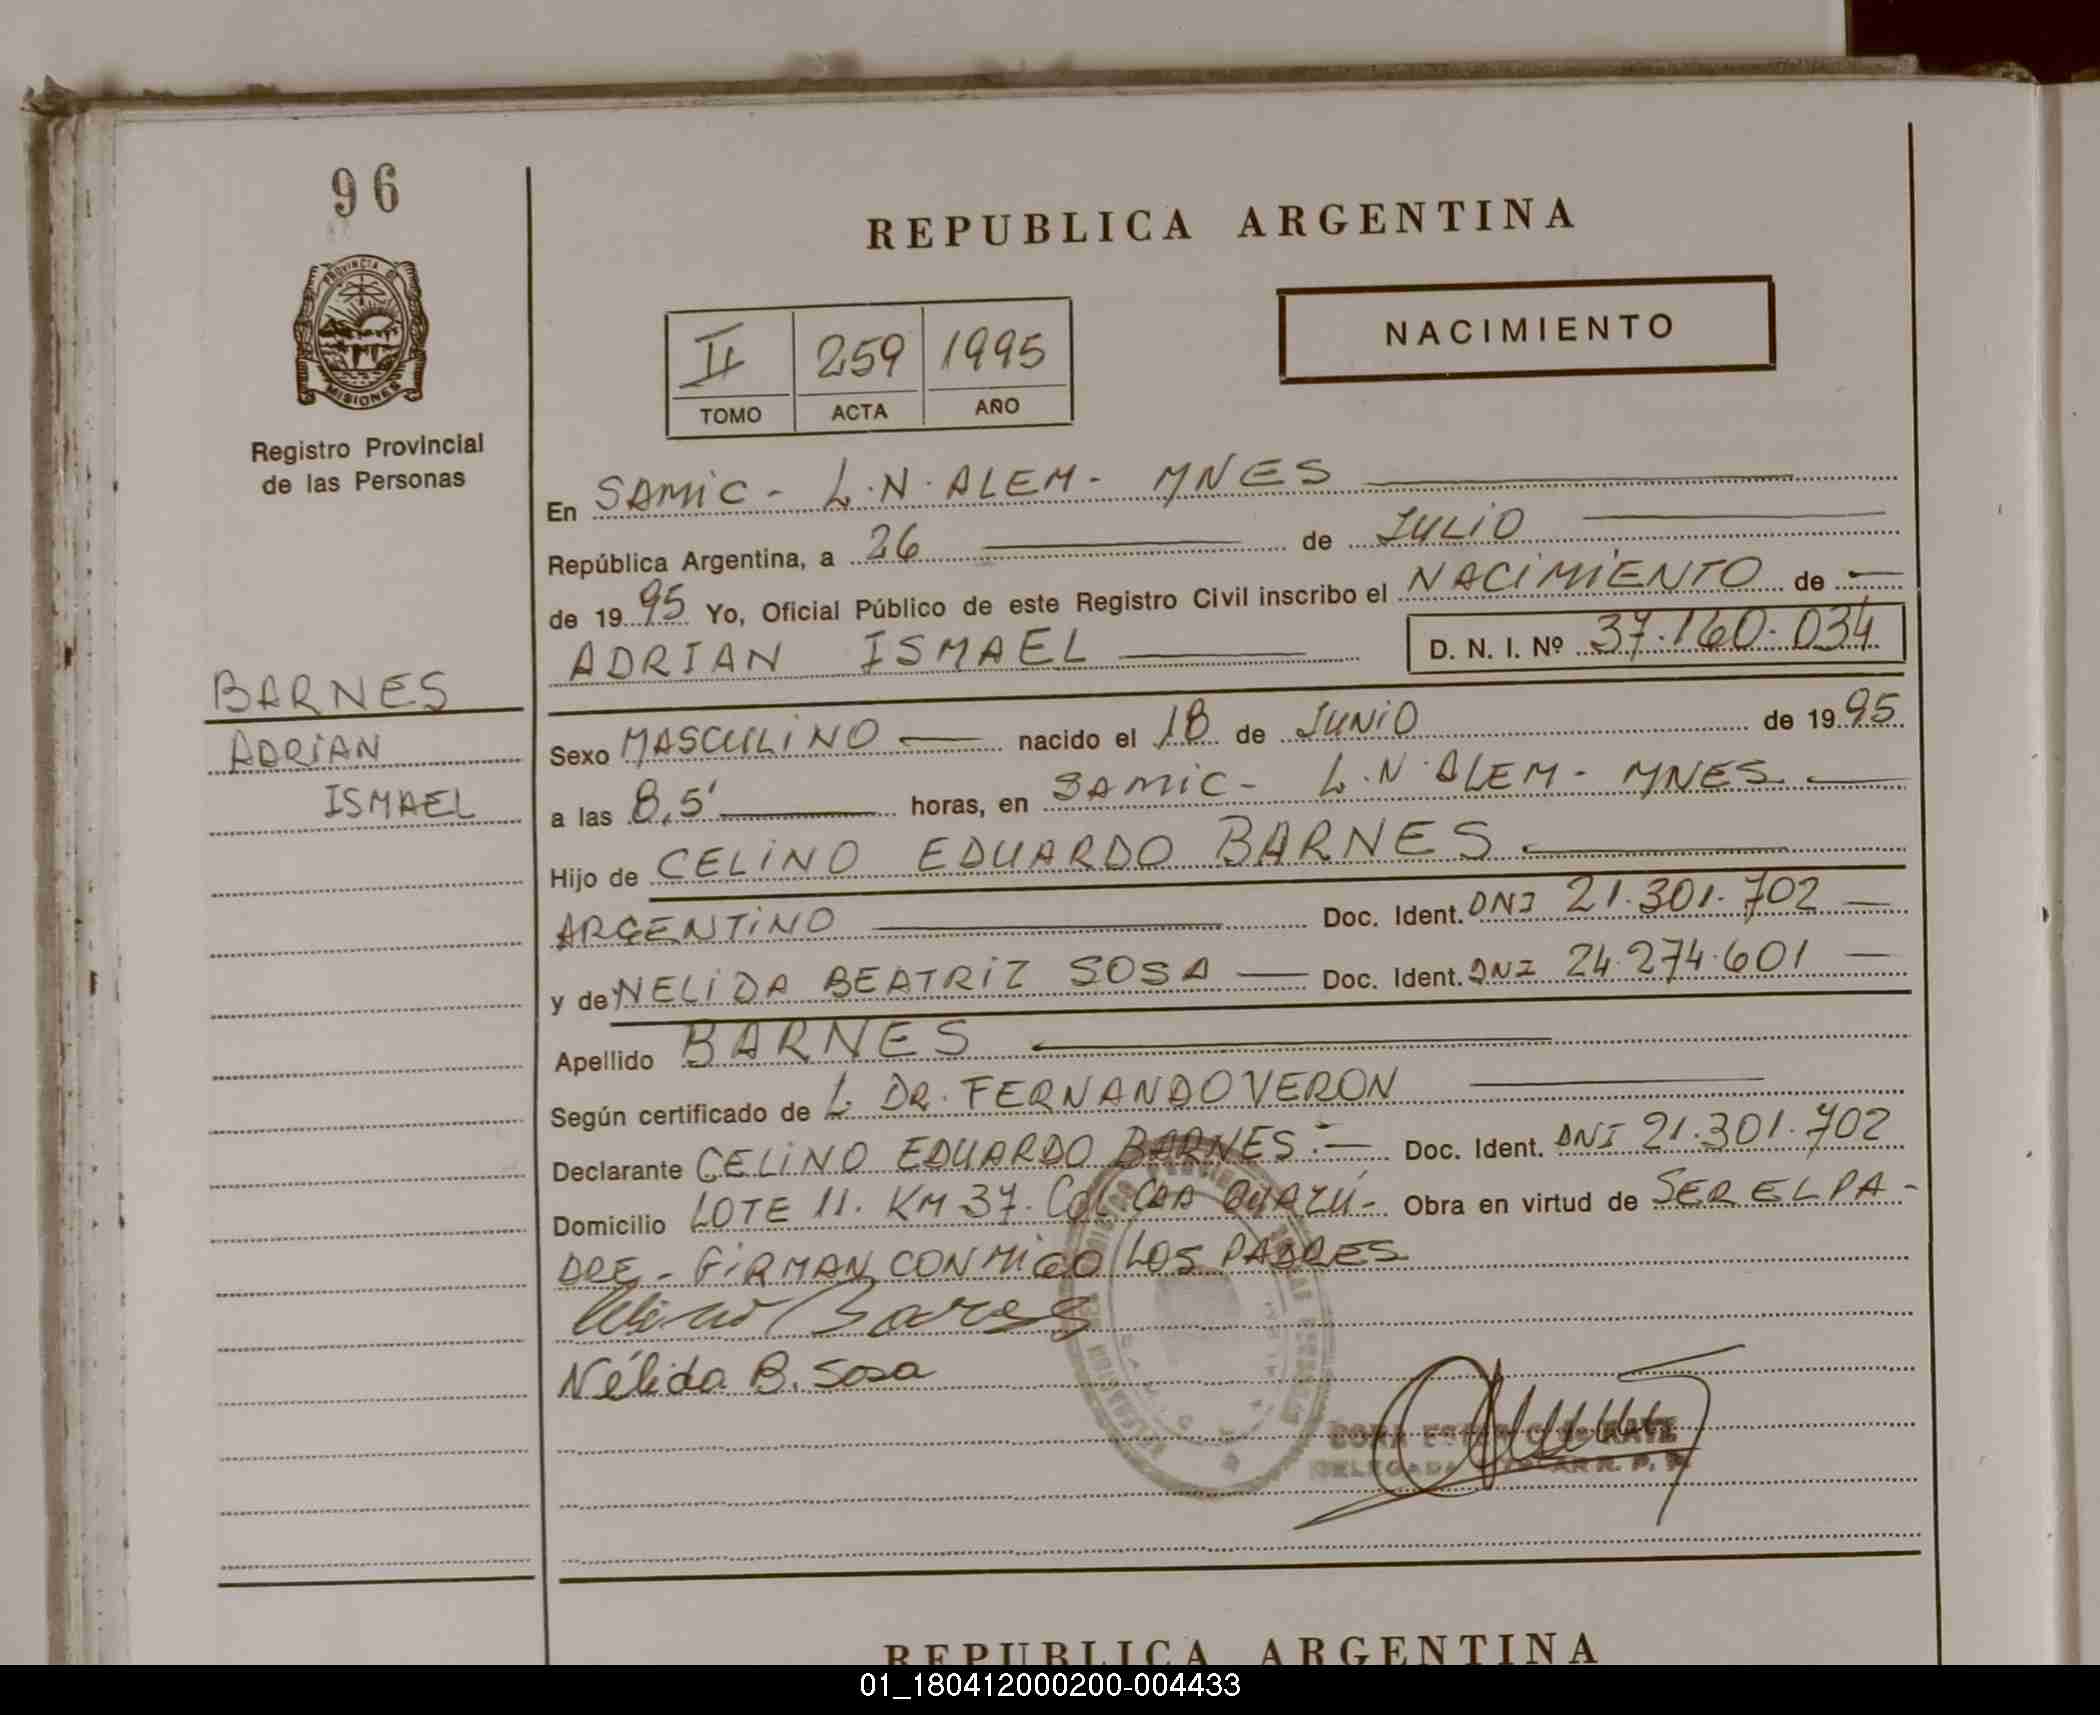 96
PROVINCIA DE
MISIONES
Registro Provincial
de las Personas
BARNES
ADRIAN
ISMAEL
REPUBLICA ARGENTINA
NACIMIENTO
II 259 1995
TOMO ACTA AÑO
En SAMIC - L.N. ALEM - MNES
República Argentina, a 26 de JULIO
de 1995 Yo, Oficial Público de este Registro Civil inscribo el NACIMIENTO de
ADRIAN ISMAEL D. N. I. Nº 37.160.034
Sexo MASCULINO nacido el 18 de JUNIO de 1995
a las 8,5' horas, en SAMIC - L.N. ALEM - MNES
Hijo de CELINO EDUARDO BARNES
ARGENTINO Doc. Ident. DNI 21.301.702
y de NELIDA BEATRIZ SOSA Doc. Ident. DNI 24.274.601
Apellido BARNES
Según certificado de L. DR. FERNANDO VERON
Declarante CELINO EDUARDO BARNES Doc. Ident. DNI 21.301.702
Domicilio LOTE 11. KM 37. COL. CAA GUAZÚ - Obra en virtud de SER EL PA-
DRE - FIRMAN CONMIGO LOS PADRES
Nélida B. Sosa
REPUBLICA ARGENTINA
01_180412000200-004433